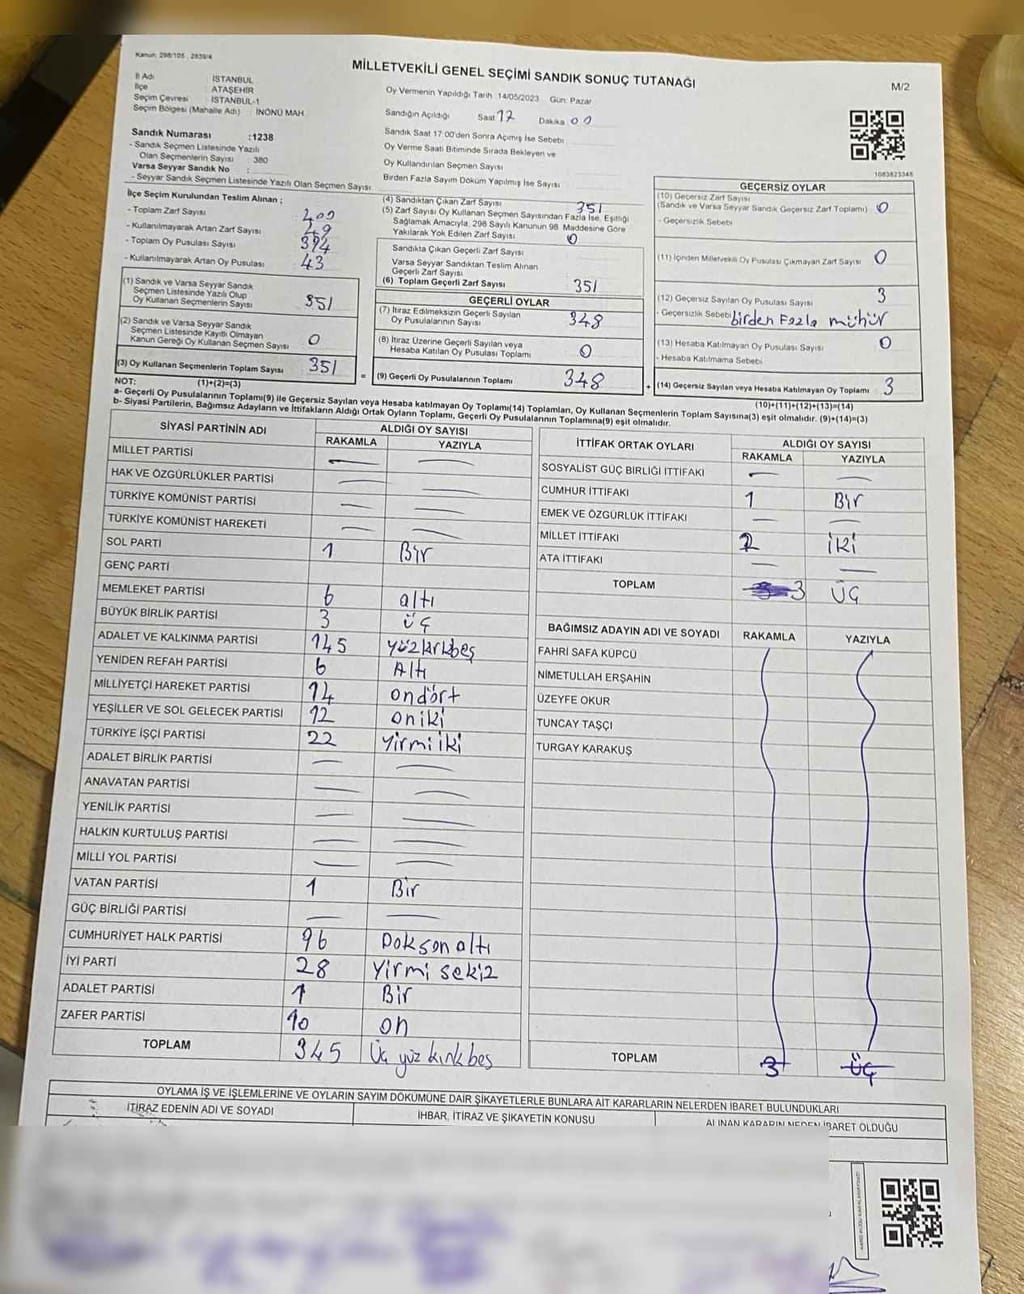 Kanun: 298/105 , 2839/4
MİLLETVEKİLİ GENEL SEÇİMİ SANDIK SONUÇ TUTANAĞI
M/2
İl Adı İSTANBUL
İlçe ATAŞEHİR
Seçim Çevresi İSTANBUL-1
Seçim Bölgesi (Mahalle Adı) : İNÖNÜ MAH.
Oy Vermenin Yapıldığı Tarih 14/05/2023 Gün: Pazar
Sandığın Açıldığı Saat 17 Dakika 00
Sandık Saat 17 00'den Sonra Açılmış İse Sebebi
Oy Verme Saati Bitiminde Sırada Bekleyen ve
Oy Kullandırılan Seçmen Sayısı
Birden Fazla Sayım Döküm Yapılmış İse Sayısı
Sandık Numarası :1238
- Sandık Seçmen Listesinde Yazılı
Olan Seçmenlerin Sayısı : 380
Varsa Seyyar Sandık No :
- Seyyar Sandık Seçmen Listesinde Yazılı Olan Seçmen Sayısı
İlçe Seçim Kurulundan Teslim Alınan ;
- Toplam Zarf Sayısı 400
- Kullanılmayarak Artan Zarf Sayısı 49
- Toplam Oy Pusulası Sayısı 394
- Kullanılmayarak Artan Oy Pusulası 43
(1) Sandık ve Varsa Seyyar Sandık
Seçmen Listesinde Yazılı Olup
Oy Kullanan Seçmenlerin Sayısı 351
(2) Sandık ve Varsa Seyyar Sandık
Seçmen Listesinde Kayıtlı Olmayan
Kanun Gereği Oy Kullanan Seçmen Sayısı 0
(3) Oy Kullanan Seçmenlerin Toplam Sayısı 351
(1)+(2)=(3)
(4) Sandıktan Çıkan Zarf Sayısı 351
(5) Zarf Sayısı Oy Kullanan Seçmen Sayısından Fazla İse, Eşitliği
Sağlamak Amacıyla, 298 Sayılı Kanunun 98. Maddesine Göre
Yakılarak Yok Edilen Zarf Sayısı 0
Sandıkta Çıkan Geçerli Zarf Sayısı
Varsa Seyyar Sandıktan Teslim Alınan
Geçerli Zarf Sayısı
(6) Toplam Geçerli Zarf Sayısı 351
GEÇERLİ OYLAR
(7) İtiraz Edilmeksizin Geçerli Sayılan
Oy Pusulalarının Sayısı 348
(8) İtiraz Üzerine Geçerli Sayılan veya
Hesaba Katılan Oy Pusulası Toplamı 0
= (9) Geçerli Oy Pusulalarının Toplamı 348
1083823348
GEÇERSİZ OYLAR
(10) Geçersiz Zarf Sayısı
(Sandık ve Varsa Seyyar Sandık Geçersiz Zarf Toplamı) 0
- Geçersizlik Sebebi
(11) İçinden Milletvekili Oy Pusulası Çıkmayan Zarf Sayısı 0
(12) Geçersiz Sayılan Oy Pusulası Sayısı 3
- Geçersizlik Sebebi birden Fazla mühür
(13) Hesaba Katılmayan Oy Pusulası Sayısı 0
- Hesaba Katılmama Sebebi
+ (14) Geçersiz Sayılan veya Hesaba Katılmayan Oy Toplamı 3
(10)+(11)+(12)+(13)=(14)
NOT:
a- Geçerli Oy Pusulalarının Toplamı(9) ile Geçersiz Sayılan veya Hesaba katılmayan Oy Toplamı(14) Toplamları, Oy Kullanan Seçmenlerin Toplam Sayısına(3) eşit olmalıdır. (9)+(14)=(3)
b- Siyasi Partilerin, Bağımsız Adayların ve İttifakların Aldığı Ortak Oyların Toplamı, Geçerli Oy Pusulalarının Toplamına(9) eşit olmalıdır.
SİYASİ PARTİNİN ADI ALDIĞI OY SAYISI
RAKAMLA YAZIYLA
MİLLET PARTİSİ
HAK VE ÖZGÜRLÜKLER PARTİSİ
TÜRKİYE KOMÜNİST PARTİSİ
TÜRKİYE KOMÜNİST HAREKETİ
SOL PARTİ 1 Bir
GENÇ PARTİ
MEMLEKET PARTİSİ 6 altı
BÜYÜK BİRLİK PARTİSİ 3 üç
ADALET VE KALKINMA PARTİSİ 145 yüzkırkbeş
YENİDEN REFAH PARTİSİ 6 Altı
MİLLİYETÇİ HAREKET PARTİSİ 14 ondört
YEŞİLLER VE SOL GELECEK PARTİSİ 12 oniki
TÜRKİYE İŞÇİ PARTİSİ 22 yirmi iki
ADALET BİRLİK PARTİSİ
ANAVATAN PARTİSİ
YENİLİK PARTİSİ
HALKIN KURTULUŞ PARTİSİ
MİLLİ YOL PARTİSİ
VATAN PARTİSİ 1 Bir
GÜÇ BİRLİĞİ PARTİSİ
CUMHURİYET HALK PARTİSİ 96 Doksan altı
İYİ PARTİ 28 Yirmi sekiz
ADALET PARTİSİ 1 Bir
ZAFER PARTİSİ 10 on
TOPLAM 345 Üç yüz kırk beş
İTTİFAK ORTAK OYLARI ALDIĞI OY SAYISI
RAKAMLA YAZIYLA
SOSYALİST GÜÇ BİRLİĞİ İTTİFAKI
CUMHUR İTTİFAKI 1 Bir
EMEK VE ÖZGÜRLÜK İTTİFAKI
MİLLET İTTİFAKI 2 iki
ATA İTTİFAKI
TOPLAM 3 ÜÇ
BAĞIMSIZ ADAYIN ADI VE SOYADI RAKAMLA YAZIYLA
FAHRİ SAFA KÜPCÜ
NİMETULLAH ERŞAHİN
ÜZEYFE OKUR
TUNCAY TAŞÇI
TURGAY KARAKUŞ
TOPLAM 3 ÜÇ
OYLAMA İŞ VE İŞLEMLERİNE VE OYLARIN SAYIM DÖKÜMÜNE DAİR ŞİKAYETLERLE BUNLARA AİT KARARLARIN NELERDEN İBARET BULUNDUKLARI
İTİRAZ EDENİN ADI VE SOYADI İHBAR, İTİRAZ VE ŞİKAYETİN KONUSU ALINAN KARARIN NEDEN İBARET OLDUĞU